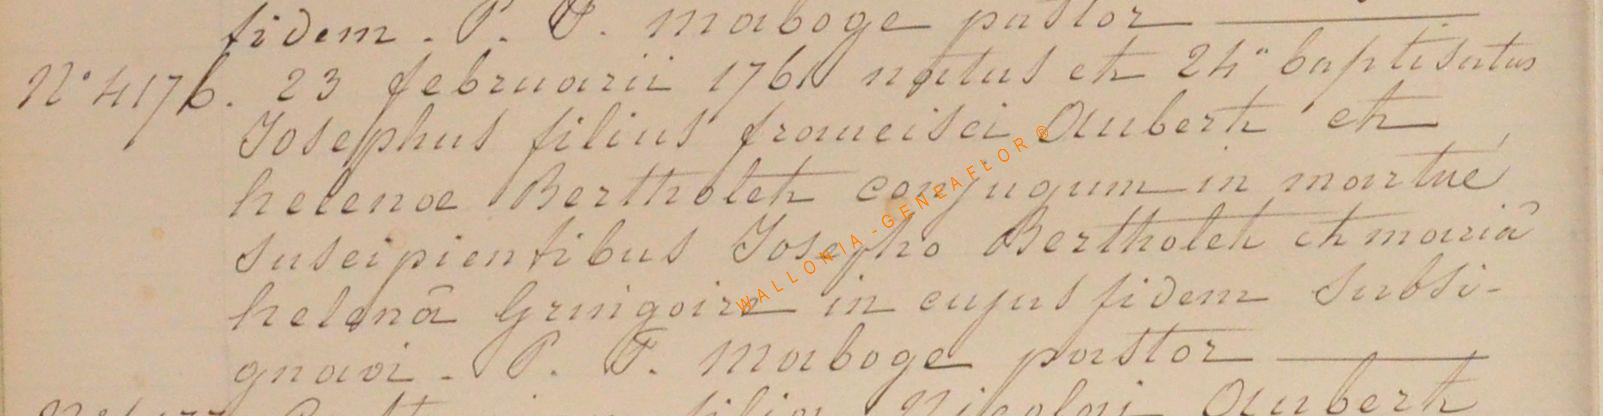 fidem. P. F. Maboge pastor
N° 4176. 23 februarii 1761 natus et 24ª baptisatus
Josephus filius francisci Aubert et
helenæ Bertholet conjugum in martué
suscipientibus Josepho Bertholet et mariâ
helenâ Gringoire in cujus fidem subsi-
gnavi. P. F. Maboge pastor
filia Nicolai Aubert
WALLONIA-GENEAFLOR ®